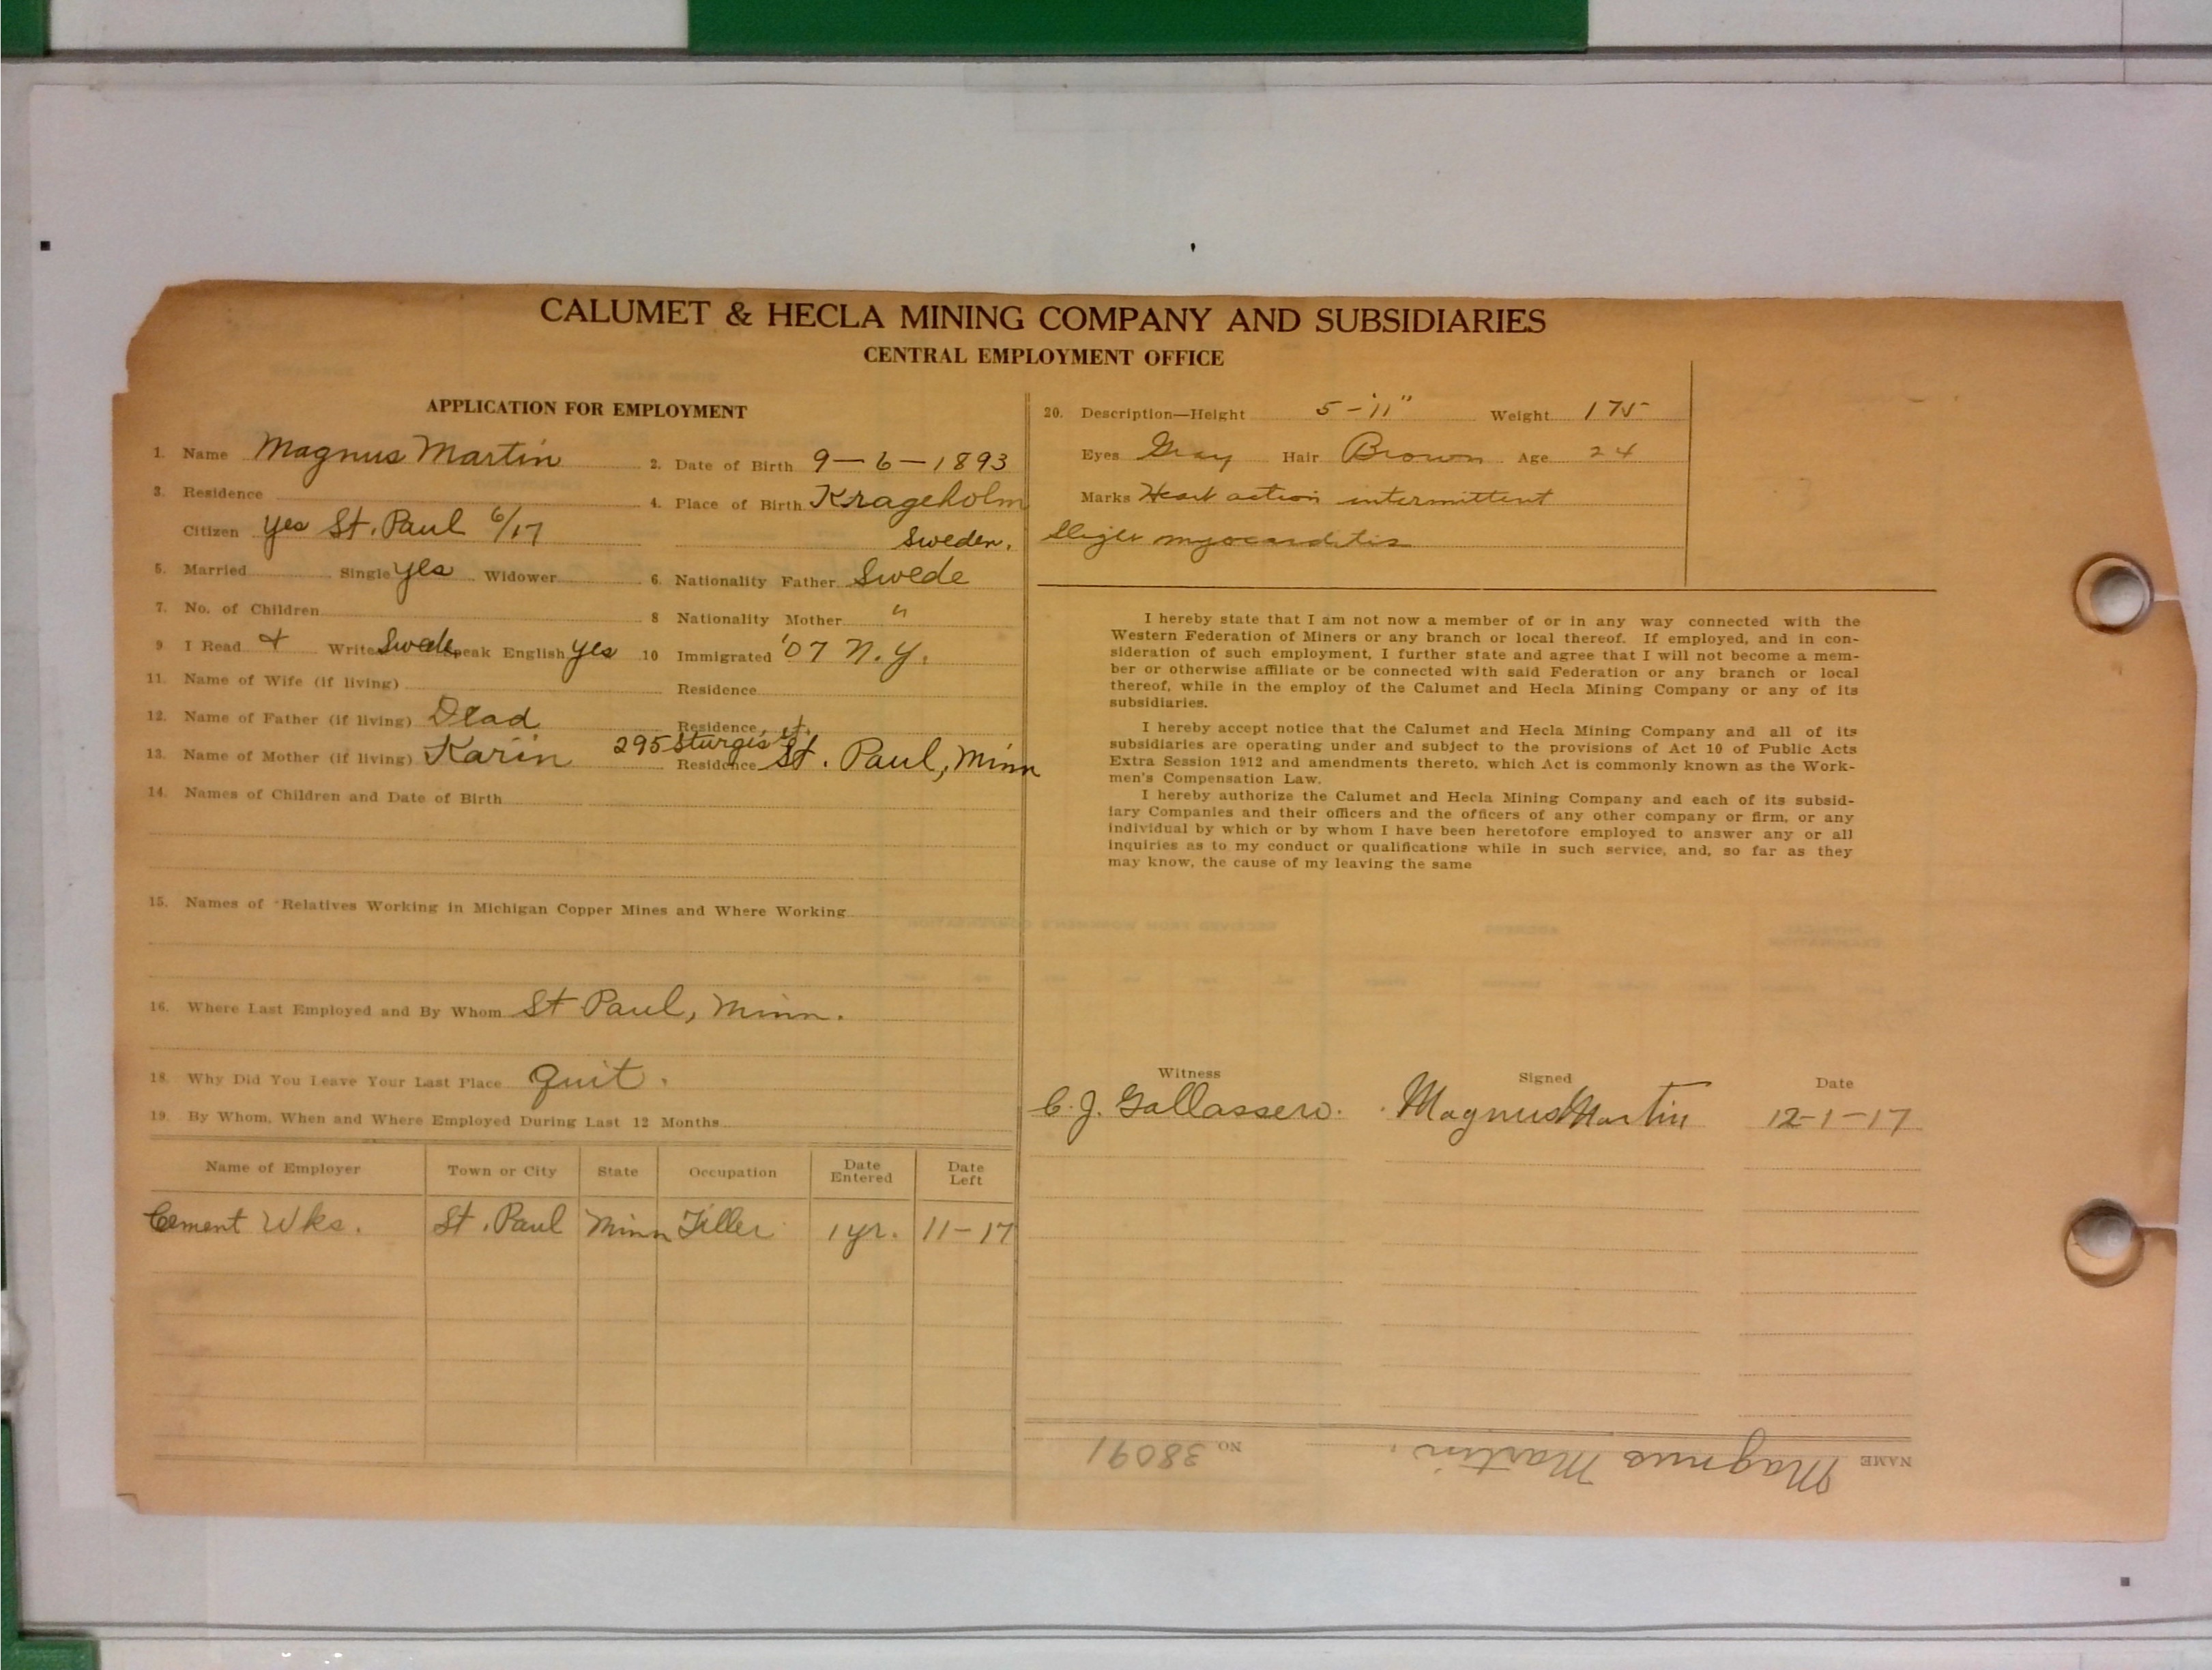 CALUMET & HECLA MINING COMPANY AND SUBSIDIARIES
CENTRAL EMPLOYMENT OFFICE
APPLICATION FOR EMPLOYMENT
1. Name Magnus Martin 2. Date of Birth 9-6-1893
3. Residence 4. Place of Birth Krageholm
Citizen yes St. Paul 6/17 Sweden.
5. Married Single yes Widower 6. Nationality Father Swede
7. No. of Children 8 Nationality Mother "
9 I Read + Write Swede Speak English yes 10 Immigrated '07 N.Y.
11. Name of Wife (if living) Residence
12. Name of Father (if living) Dead Residence
295 Sturgis St.
13. Name of Mother (if living) Karin Residence St. Paul, Minn
14. Names of Children and Date of Birth
15. Names of Relatives Working in Michigan Copper Mines and Where Working
16. Where Last Employed and By Whom St Paul, Minn.
18. Why Did You Leave Your Last Place quit.
19. By Whom, When and Where Employed During Last 12 Months
Name of Employer Town or City State Occupation Date Entered Date Left
Cement Wks. St. Paul Minn Filler 1 yr. 11-17
20. Description—Height 5-11" Weight 175
Eyes Gray Hair Brown Age 24
Marks Heart action intermittent
myocarditis
I hereby state that I am not now a member of or in any way connected with the
Western Federation of Miners or any branch or local thereof. If employed, and in con-
sideration of such employment, I further state and agree that I will not become a mem-
ber or otherwise affiliate or be connected with said Federation or any branch or local
thereof, while in the employ of the Calumet and Hecla Mining Company or any of its
subsidiaries.
I hereby accept notice that the Calumet and Hecla Mining Company and all of its
subsidiaries are operating under and subject to the provisions of Act 10 of Public Acts
Extra Session 1912 and amendments thereto, which Act is commonly known as the Work-
men's Compensation Law.
I hereby authorize the Calumet and Hecla Mining Company and each of its subsid-
iary Companies and their officers and the officers of any other company or firm, or any
individual by which or by whom I have been heretofore employed to answer any or all
inquiries as to my conduct or qualifications while in such service, and, so far as they
may know, the cause of my leaving the same
Witness Signed Date
C. J. Gallassero. Magnus Martin 12-1-17
NAME Magnus Martin. NO. 38091